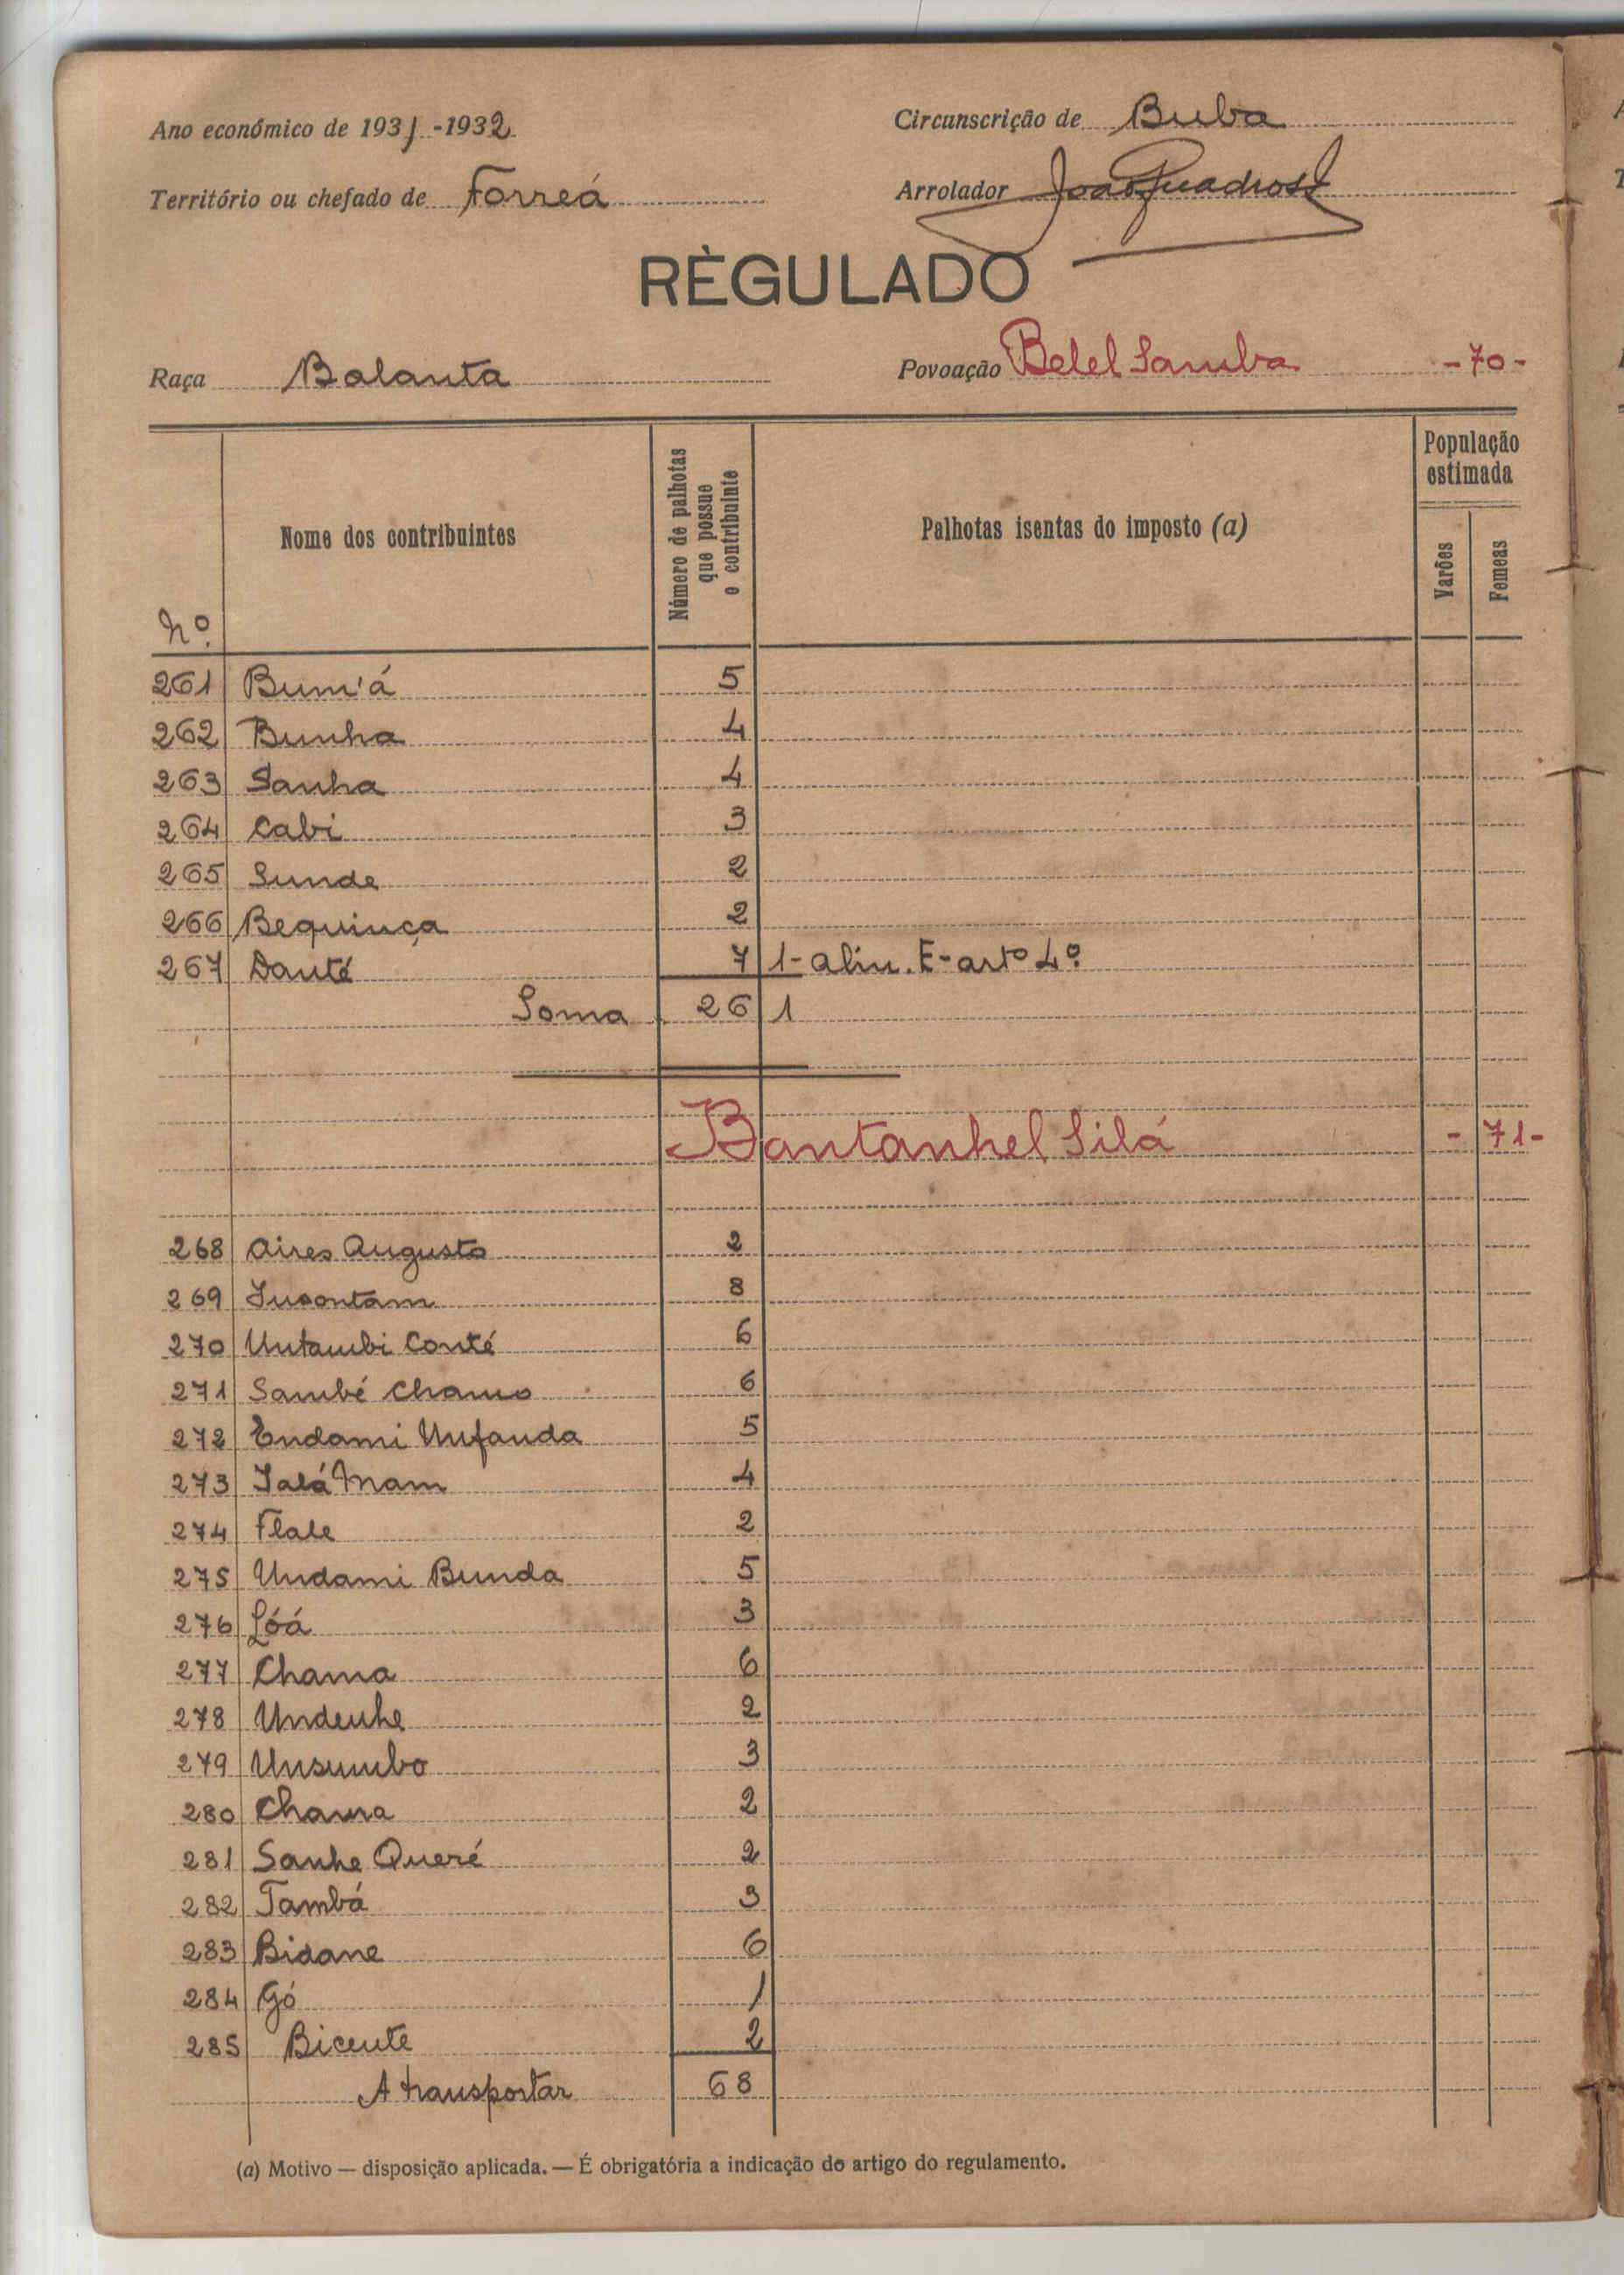 Ano económico de 1931-1932
Circunscrição de Buba
Território ou chefado de Forreá
Arrolador João Quadros
RÈGULADO
Raça Balanta
Povoação Belel Samba -70-
Nº
Nome dos contribuintes
Número de palhotas que possue o contribuinte
Palhotas isentas do imposto (a)
População estimada
Varões
Femeas
261 Bum'á 5
262 Bunha 4
263 Sanha 4
264 Cabi 3
265 Sunde 2
266 Bequinça 2
267 Danté 7 1- alin. E- artº 4º
Soma 26 1
Bantanhel Silá -71-
268 Aires Augusto 2
269 Iusontam 8
270 Untambi Conté 6
271 Sambé Chamo 6
272 Endami Unfanda 5
273 Ialá Mam 4
274 Flale 2
275 Undami Bunda 5
276 Lóá 3
277 Chama 6
278 Undenhe 2
279 Unsumbo 3
280 Chama 2
281 Sanhe Queré 2
282 Tambá 3
283 Bidane 6
284 Gó 1
285 Bicente 2
A transportar 68
(a) Motivo — disposição aplicada. — É obrigatória a indicação do artigo do regulamento.